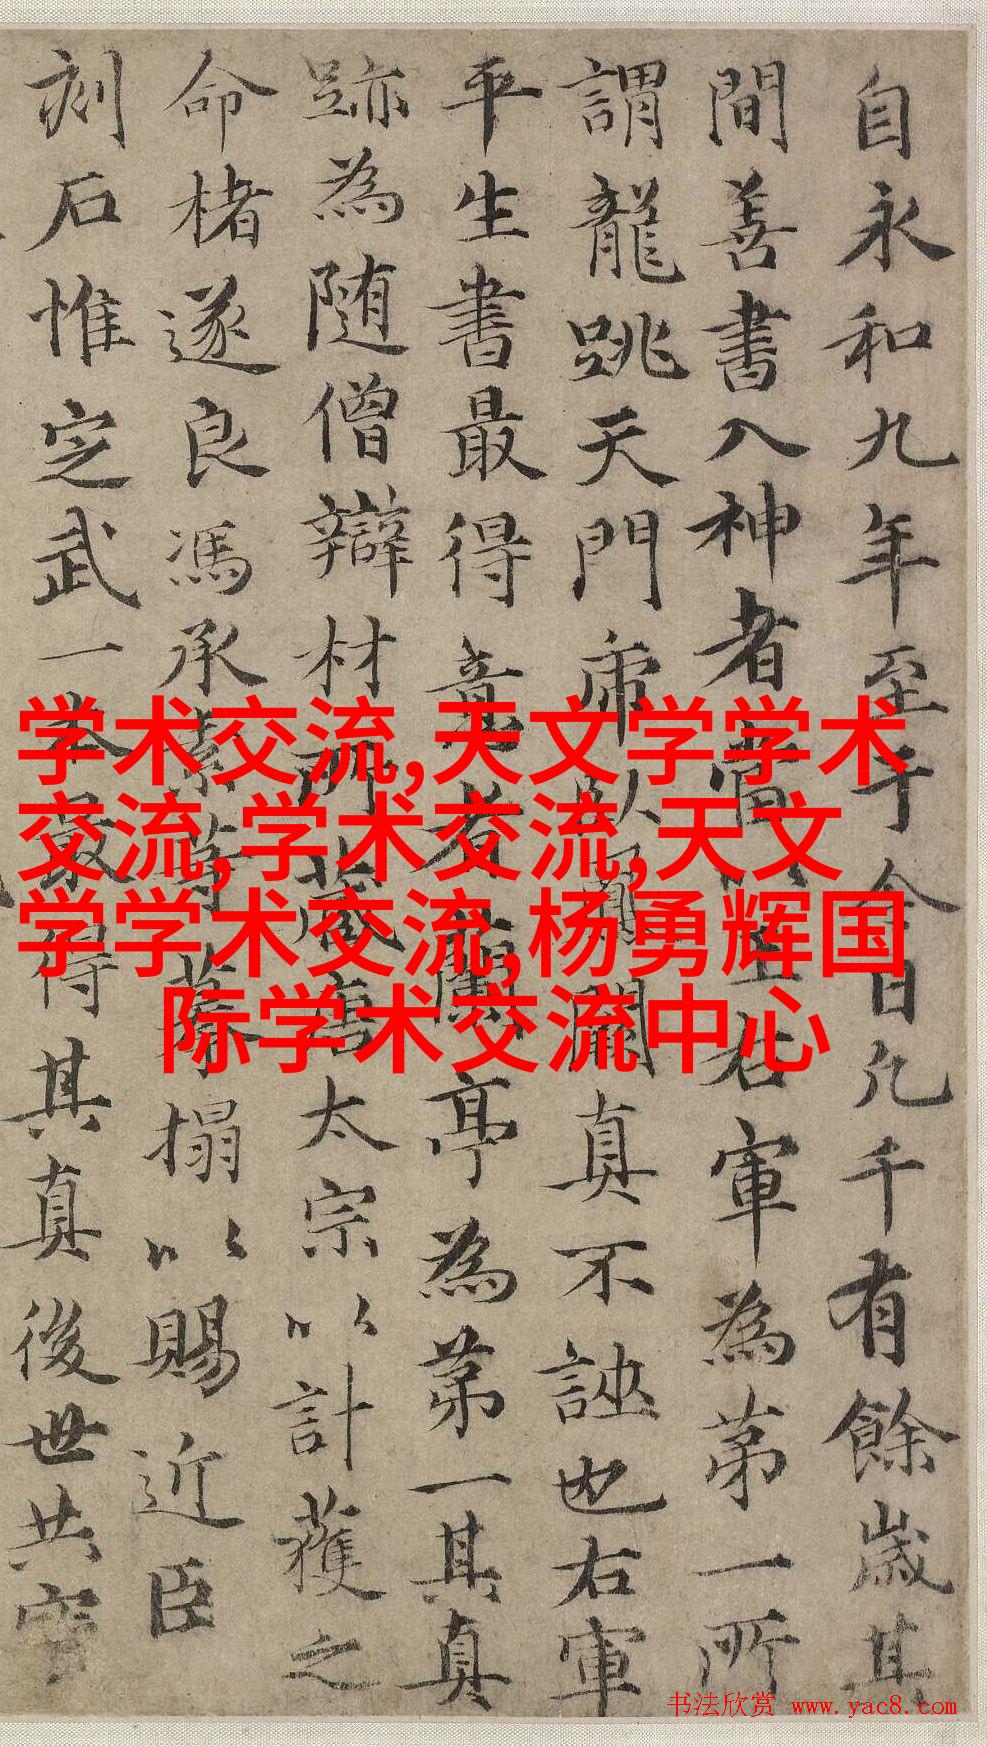 自永和九年至于今日凡千有餘歲其
間善書入神者當以王右軍為第一所
謂龍跳天門虎臥鳳閣真不誣也右軍
平生書最得意者蘭亭為第一其真
跡為随僧辯材所蔵唐太宗以計獲之
命楮遂良馮承素等摹搨以賜近臣
刻石惟定武一本最得其真後世共寳
学术交流,天文学学术
交流,学术交流,天文
学学术交流,杨勇辉国
际学术交流中心
书法欣赏 www.yac8.com